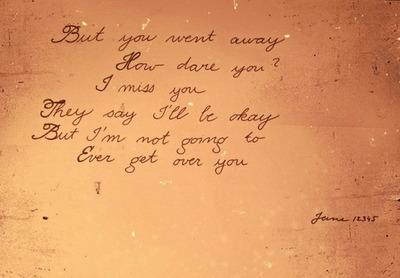 But you went away
How dare you?
I miss you
They say I'll be okay
But I'm not going to
Ever get over you
Jane 12345